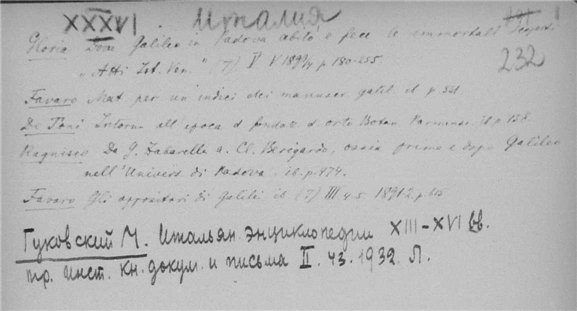 XXXVI Италия 191
232
Gloria Dove Galileo in Padova abitò e fece le immortali scoperte
"Atti Ist. Ven." (7) V V 1893/4 p 180-255
Favaro Mat. per un' indici dei manuscr galil ib p.
De Toni Intorno all'epoca d. fondaz d. orto Botan Parmense ib p 136
Ragnisco Da G. Zabarella a Cl. Berigardo, ossia prima e dopo Galileo
nell' Univers. di Padova. ib. p. 474.
Favaro Gli oppositori di Galilei ib (7) III 4.5 1891-2 p.
Гуковский М. Итальян. энциклопедии XIII-XVI вв.
тр. инст. кн. докум. и письма II. 43. 1932. Л.